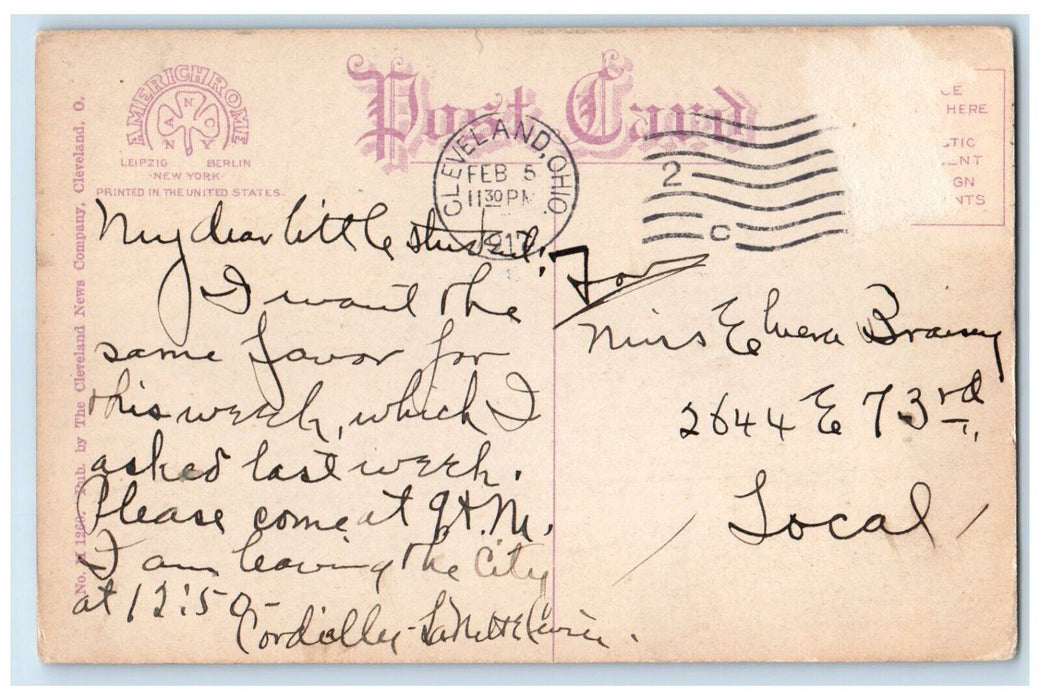 AMERICHROME
A N C NY
LEIPZIG BERLIN
·NEW YORK·
PRINTED IN THE UNITED STATES.
Post Card
CE
HERE
STIC
ENT
GN
NTS
CLEVELAND, OHIO.
FEB 5
11 30 PM
1917
2
C
Pub. by The Cleveland News Company, Cleveland, O.
My dear little student:
I want the
same favor for
this week, which I
asked last week.
Please come at 9 A.M.
I am leaving the City
at 12:50-
Cordially-
For
Miss Elvera
2644 E 73rd.
/ Local /